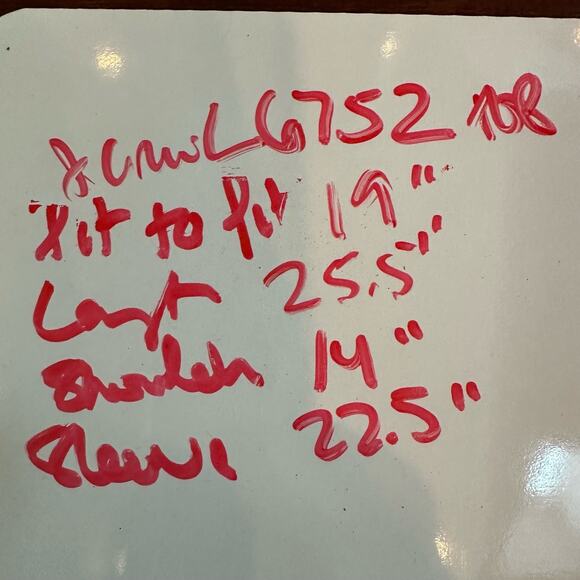 J.Crew L6752 top
Pit to Pit 19"
Length 25.5"
Shoulder 14"
Sleeve 22.5"